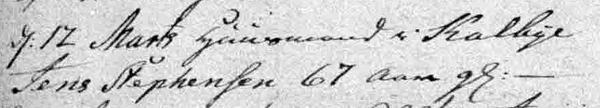 d: 12 Marts Huusmand i Kalbÿe
Jens Stephensen 67 aar gl: —